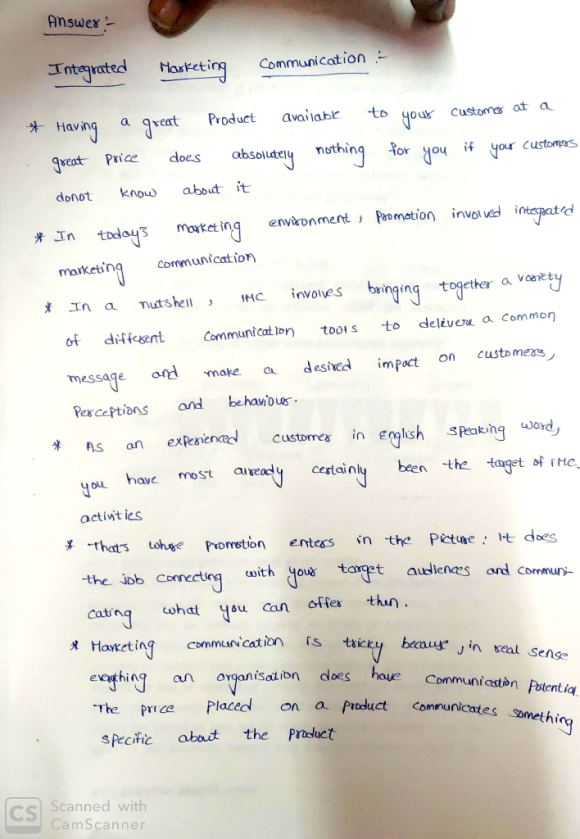 Answer :-
Integrated Marketing Communication :-
* Having a great Product available to your customer at a
great price does absolutely nothing for you if your customers
donot know about it
* In today's marketing environment, promotion involved integrated
marketing communication
* In a nutshell, IMC involves bringing together a variety
of different communication tools to delivere a common
message and make a desired impact on customers,
perceptions and behaviour.
* As an experienced customer in english speaking word,
you have most already certainly been the target of IMC.
activities
* Thats whose promotion enters in the picture: It does
the job connecting with your target audiences and communi-
cating what you can offer then.
* Marketing communication is tricky because, in real sense
everything an organisation does have communication potential.
The price placed on a product communicates something
specific about the product
CS Scanned with
CamScanner